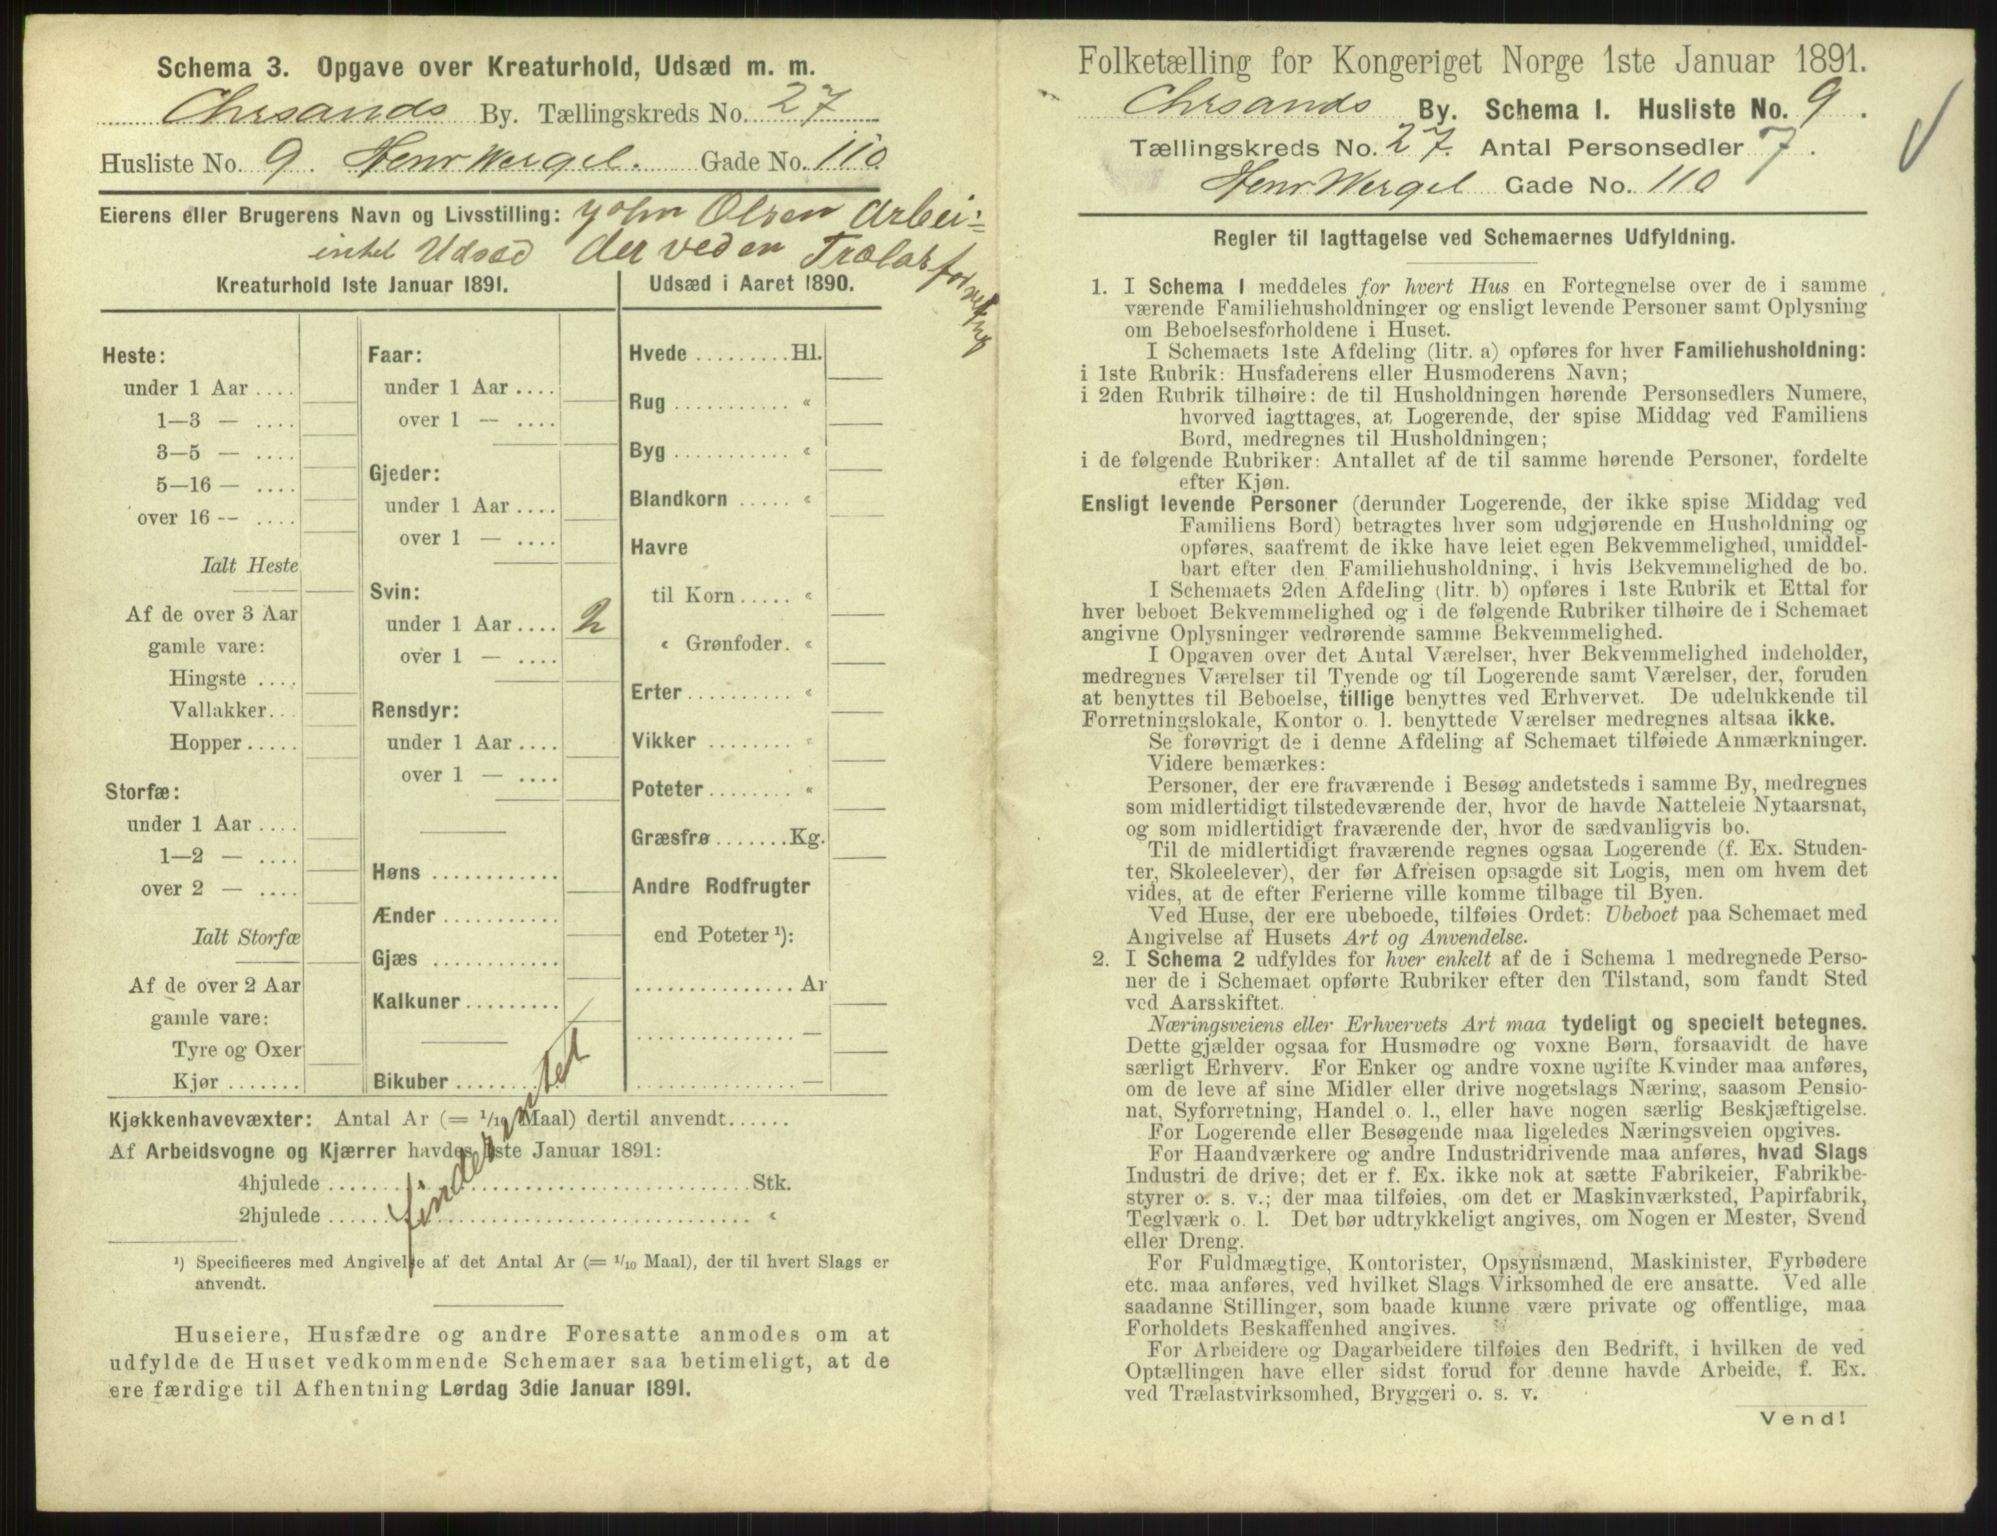 Schema 3. Opgave over Kreaturhold, Udsæd m. m.
Chrsands By. Tællingskreds No. 27
Husliste No. 9. Henr Wergel. Gade No. 110
Eierens eller Brugerens Navn og Livsstilling: John Olsen Arbei-
intet Udsæd der ved en Trælast
Kreaturhold 1ste Januar 1891.
Heste:
under 1 Aar ....
1—3 — ....
3—5 — ....
5—16 — ....
over 16 -- ....
Ialt Heste
Af de over 3 Aar
gamle vare:
Hingste ....
Vallakker...
Hopper .....
Storfæ:
under 1 Aar ....
1—2 — ....
over 2 — ....
Ialt Storfæ
Af de over 2 Aar
gamle vare:
Tyre og Oxer
Kjør .......
Faar:
under 1 Aar ....
over 1 — ....
Gjeder:
under 1 Aar ....
over 1 — ....
Svin:
under 1 Aar .... 2
over 1 — ....
Rensdyr:
under 1 Aar ....
over 1 — ....
Høns ............
Ænder ...........
Gjæs ............
Kalkuner .........
Bikuber ..........
Udsæd i Aaret 1890.
Hvede ......... Hl.
Rug ........... «
Byg ........... «
Blandkorn ..... «
Havre
til Korn ..... «
« Grønfoder. «
Erter .......... «
Vikker ........ «
Poteter ........ «
Græsfrø ....... Kg.
Andre Rodfrugter
end Poteter ¹):
............... Ar
............... —
............... —
Kjøkkenhavevæxter: Antal Ar (= 1/10 Maal) dertil anvendt......
Af Arbeidsvogne og Kjærrer havdes 1ste Januar 1891:
4hjulede ........................ Stk.
2hjulede ........................ «
findes intet
¹) Specificeres med Angivelse af det Antal Ar (= 1/10 Maal), der til hvert Slags er
anvendt.
Huseiere, Husfædre og andre Foresatte anmodes om at
udfylde de Huset vedkommende Schemaer saa betimeligt, at de
ere færdige til Afhentning Lørdag 3die Januar 1891.
Folketælling for Kongeriget Norge 1ste Januar 1891.
Chrsands By. Schema I. Husliste No. 9.
Tællingskreds No. 27. Antal Personsedler 7.
Henr Wergel Gade No. 110
Regler til Iagttagelse ved Schemaernes Udfyldning.
1. I Schema I meddeles for hvert Hus en Fortegnelse over de i samme
værende Familiehusholdninger og ensligt levende Personer samt Oplysning
om Beboelsesforholdene i Huset.
I Schemaets 1ste Afdeling (litr. a) opføres for hver Familiehusholdning:
i 1ste Rubrik: Husfaderens eller Husmoderens Navn;
i 2den Rubrik tilhøire: de til Husholdningen hørende Personsedlers Numere,
hvorved iagttages, at Logerende, der spise Middag ved Familiens
Bord, medregnes til Husholdningen;
i de følgende Rubriker: Antallet af de til samme hørende Personer, fordelte
efter Kjøn.
Ensligt levende Personer (derunder Logerende, der ikke spise Middag ved
Familiens Bord) betragtes hver som udgjørende en Husholdning og
opføres, saafremt de ikke have leiet egen Bekvemmelighed, umiddel-
bart efter den Familiehusholdning, i hvis Bekvemmelighed de bo.
I Schemaets 2den Afdeling (litr. b) opføres i 1ste Rubrik et Ettal for
hver beboet Bekvemmelighed og i de følgende Rubriker tilhøire de i Schemaet
angivne Oplysninger vedrørende samme Bekvemmelighed.
I Opgaven over det Antal Værelser, hver Bekvemmelighed indeholder,
medregnes Værelser til Tyende og til Logerende samt Værelser, der, foruden
at benyttes til Beboelse, tillige benyttes ved Erhvervet. De udelukkende til
Forretningslokale, Kontor o. l. benyttede Værelser medregnes altsaa ikke.
Se forøvrigt de i denne Afdeling af Schemaet tilføiede Anmærkninger.
Videre bemærkes:
Personer, der ere fraværende i Besøg andetsteds i samme By, medregnes
som midlertidigt tilstedeværende der, hvor de havde Natteleie Nytaarsnat,
og som midlertidigt fraværende der, hvor de sædvanligvis bo.
Til de midlertidigt fraværende regnes ogsaa Logerende (f. Ex. Studen-
ter, Skoleelever), der før Afreisen opsagde sit Logis, men om hvem det
vides, at de efter Ferierne ville komme tilbage til Byen.
Ved Huse, der ere ubeboede, tilføies Ordet: Ubeboet paa Schemaet med
Angivelse af Husets Art og Anvendelse.
2. I Schema 2 udfyldes for hver enkelt af de i Schema 1 medregnede Perso-
ner de i Schemaet opførte Rubriker efter den Tilstand, som fandt Sted
ved Aarsskiftet.
Næringsveiens eller Erhvervets Art maa tydeligt og specielt betegnes.
Dette gjælder ogsaa for Husmødre og voxne Børn, forsaavidt de have
særligt Erhverv. For Enker og andre voxne ugifte Kvinder maa anføres,
om de leve af sine Midler eller drive nogetslags Næring, saasom Pensio-
nat, Syforretning, Handel o. l., eller have nogen særlig Beskjæftigelse.
For Logerende eller Besøgende maa ligeledes Næringsveien opgives.
For Haandværkere og andre Industridrivende maa anføres, hvad Slags
Industri de drive; det er f. Ex. ikke nok at sætte Fabrikeier, Fabrikbe-
styrer o. s. v.; der maa tilføies, om det er Maskinværksted, Papirfabrik,
Teglværk o. l. Det bør udtrykkeligt angives, om Nogen er Mester, Svend
eller Dreng.
For Fuldmægtige, Kontorister, Opsynsmænd, Maskinister, Fyrbødere
etc. maa anføres, ved hvilket Slags Virksomhed de ere ansatte. Ved alle
saadanne Stillinger, som baade kunne være private og offentlige, maa
Forholdets Beskaffenhed angives.
For Arbeidere og Dagarbeidere tilføies den Bedrift, i hvilken de ved
Optællingen have eller sidst forud for denne havde Arbeide, f. Ex.
ved Trælastvirksomhed, Bryggeri o. s. v.
Vend!